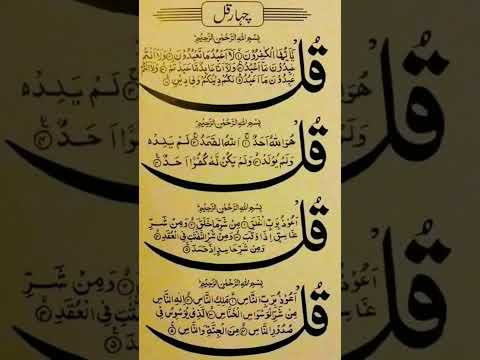 چہار قل
بِسْمِ اللهِ الرَّحْمٰنِ الرَّحِيْمِ
قُلْ يٰٓاَيُّهَا الْكٰفِرُوْنَ ۝ لَآ اَعْبُدُ مَا تَعْبُدُوْنَ ۝ وَلَآ اَنْتُمْ
عٰبِدُوْنَ مَآ اَعْبُدُ ۝ وَلَآ اَنَا عَابِدٌ مَّا عَبَدْتُّمْ ۝ وَلَآ اَنْتُمْ
عٰبِدُوْنَ مَآ اَعْبُدُ ۝ لَكُمْ دِيْنُكُمْ وَلِيَ دِيْنِ ۝
بِسْمِ اللهِ الرَّحْمٰنِ الرَّحِيْمِ
قُلْ هُوَ اللهُ اَحَدٌ ۝ اَللهُ الصَّمَدُ ۝ لَمْ يَلِدْ ۙ
وَلَمْ يُوْلَدْ ۝ وَلَمْ يَكُنْ لَّهٗ كُفُوًا اَحَدٌ ۝
بِسْمِ اللهِ الرَّحْمٰنِ الرَّحِيْمِ
قُلْ اَعُوْذُ بِرَبِّ الْفَلَقِ ۝ مِنْ شَرِّ مَا خَلَقَ ۝ وَمِنْ شَرِّ
غَاسِقٍ اِذَا وَقَبَ ۝ وَمِنْ شَرِّ النَّفّٰثٰتِ فِي الْعُقَدِ ۝
وَمِنْ شَرِّ حَاسِدٍ اِذَا حَسَدَ ۝
بِسْمِ اللهِ الرَّحْمٰنِ الرَّحِيْمِ
قُلْ اَعُوْذُ بِرَبِّ النَّاسِ ۝ مَلِكِ النَّاسِ ۝ اِلٰهِ النَّاسِ ۝
مِنْ شَرِّ الْوَسْوَاسِ الْخَنَّاسِ ۝ الَّذِيْ يُوَسْوِسُ فِيْ
صُدُوْرِ النَّاسِ ۝ مِنَ الْجِنَّةِ وَالنَّاسِ ۝